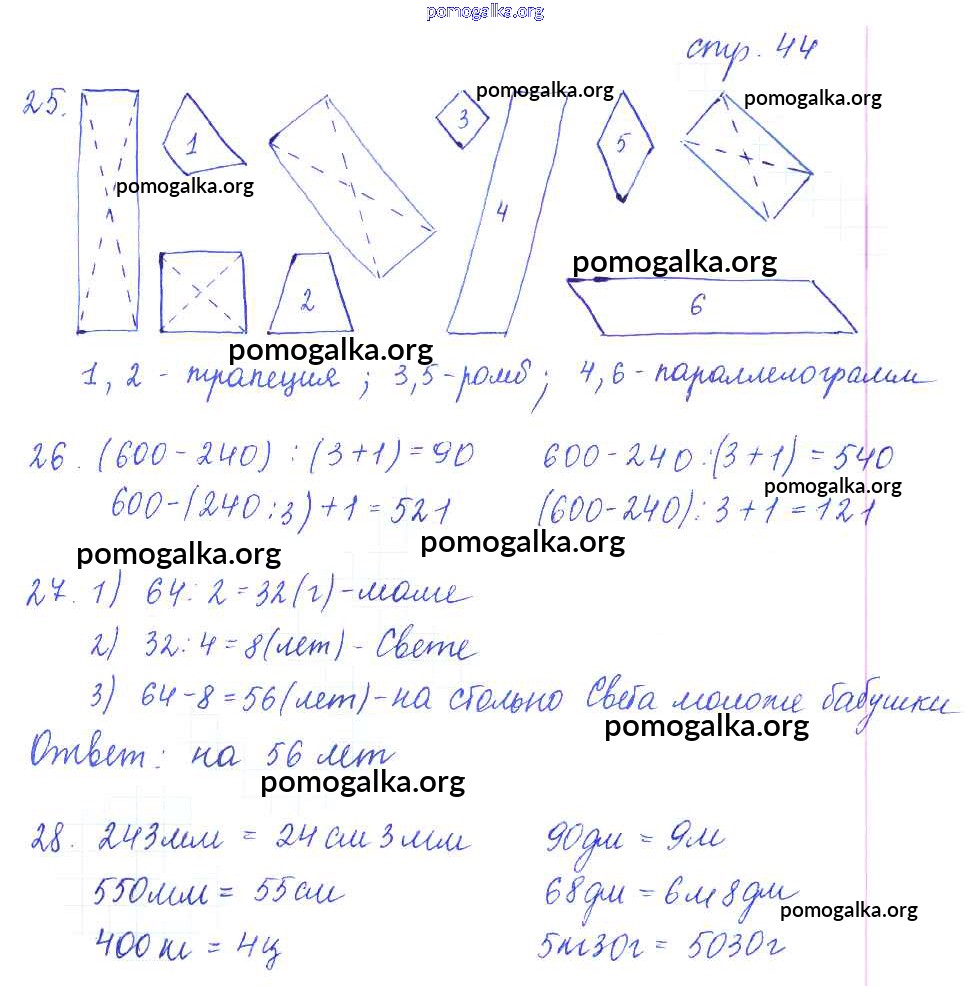 pomogalka.org
стр. 44
25.
1
3
4
5
pomogalka.org
pomogalka.org
pomogalka.org
2
pomogalka.org
6
pomogalka.org
1, 2 - трапеция; 3,5-ромб; 4,6-параллелограмм
26. (600-240):(3+1)=90 600-240:(3+1)=540
pomogalka.org
600-(240:3)+1=521 (600-240):3+1=121
pomogalka.org pomogalka.org
27. 1) 64:2=32(г)-маме
2) 32:4=8(лет)-Свете
3) 64-8=56(лет)-на столько Света моложе бабушки
pomogalka.org
Ответ: на 56 лет
pomogalka.org
28. 243мм = 24см 3мм 90дм = 9м
550мм = 55см 68дм = 6м 8дм
pomogalka.org
400кг = 4ц 5кг30г = 5030г